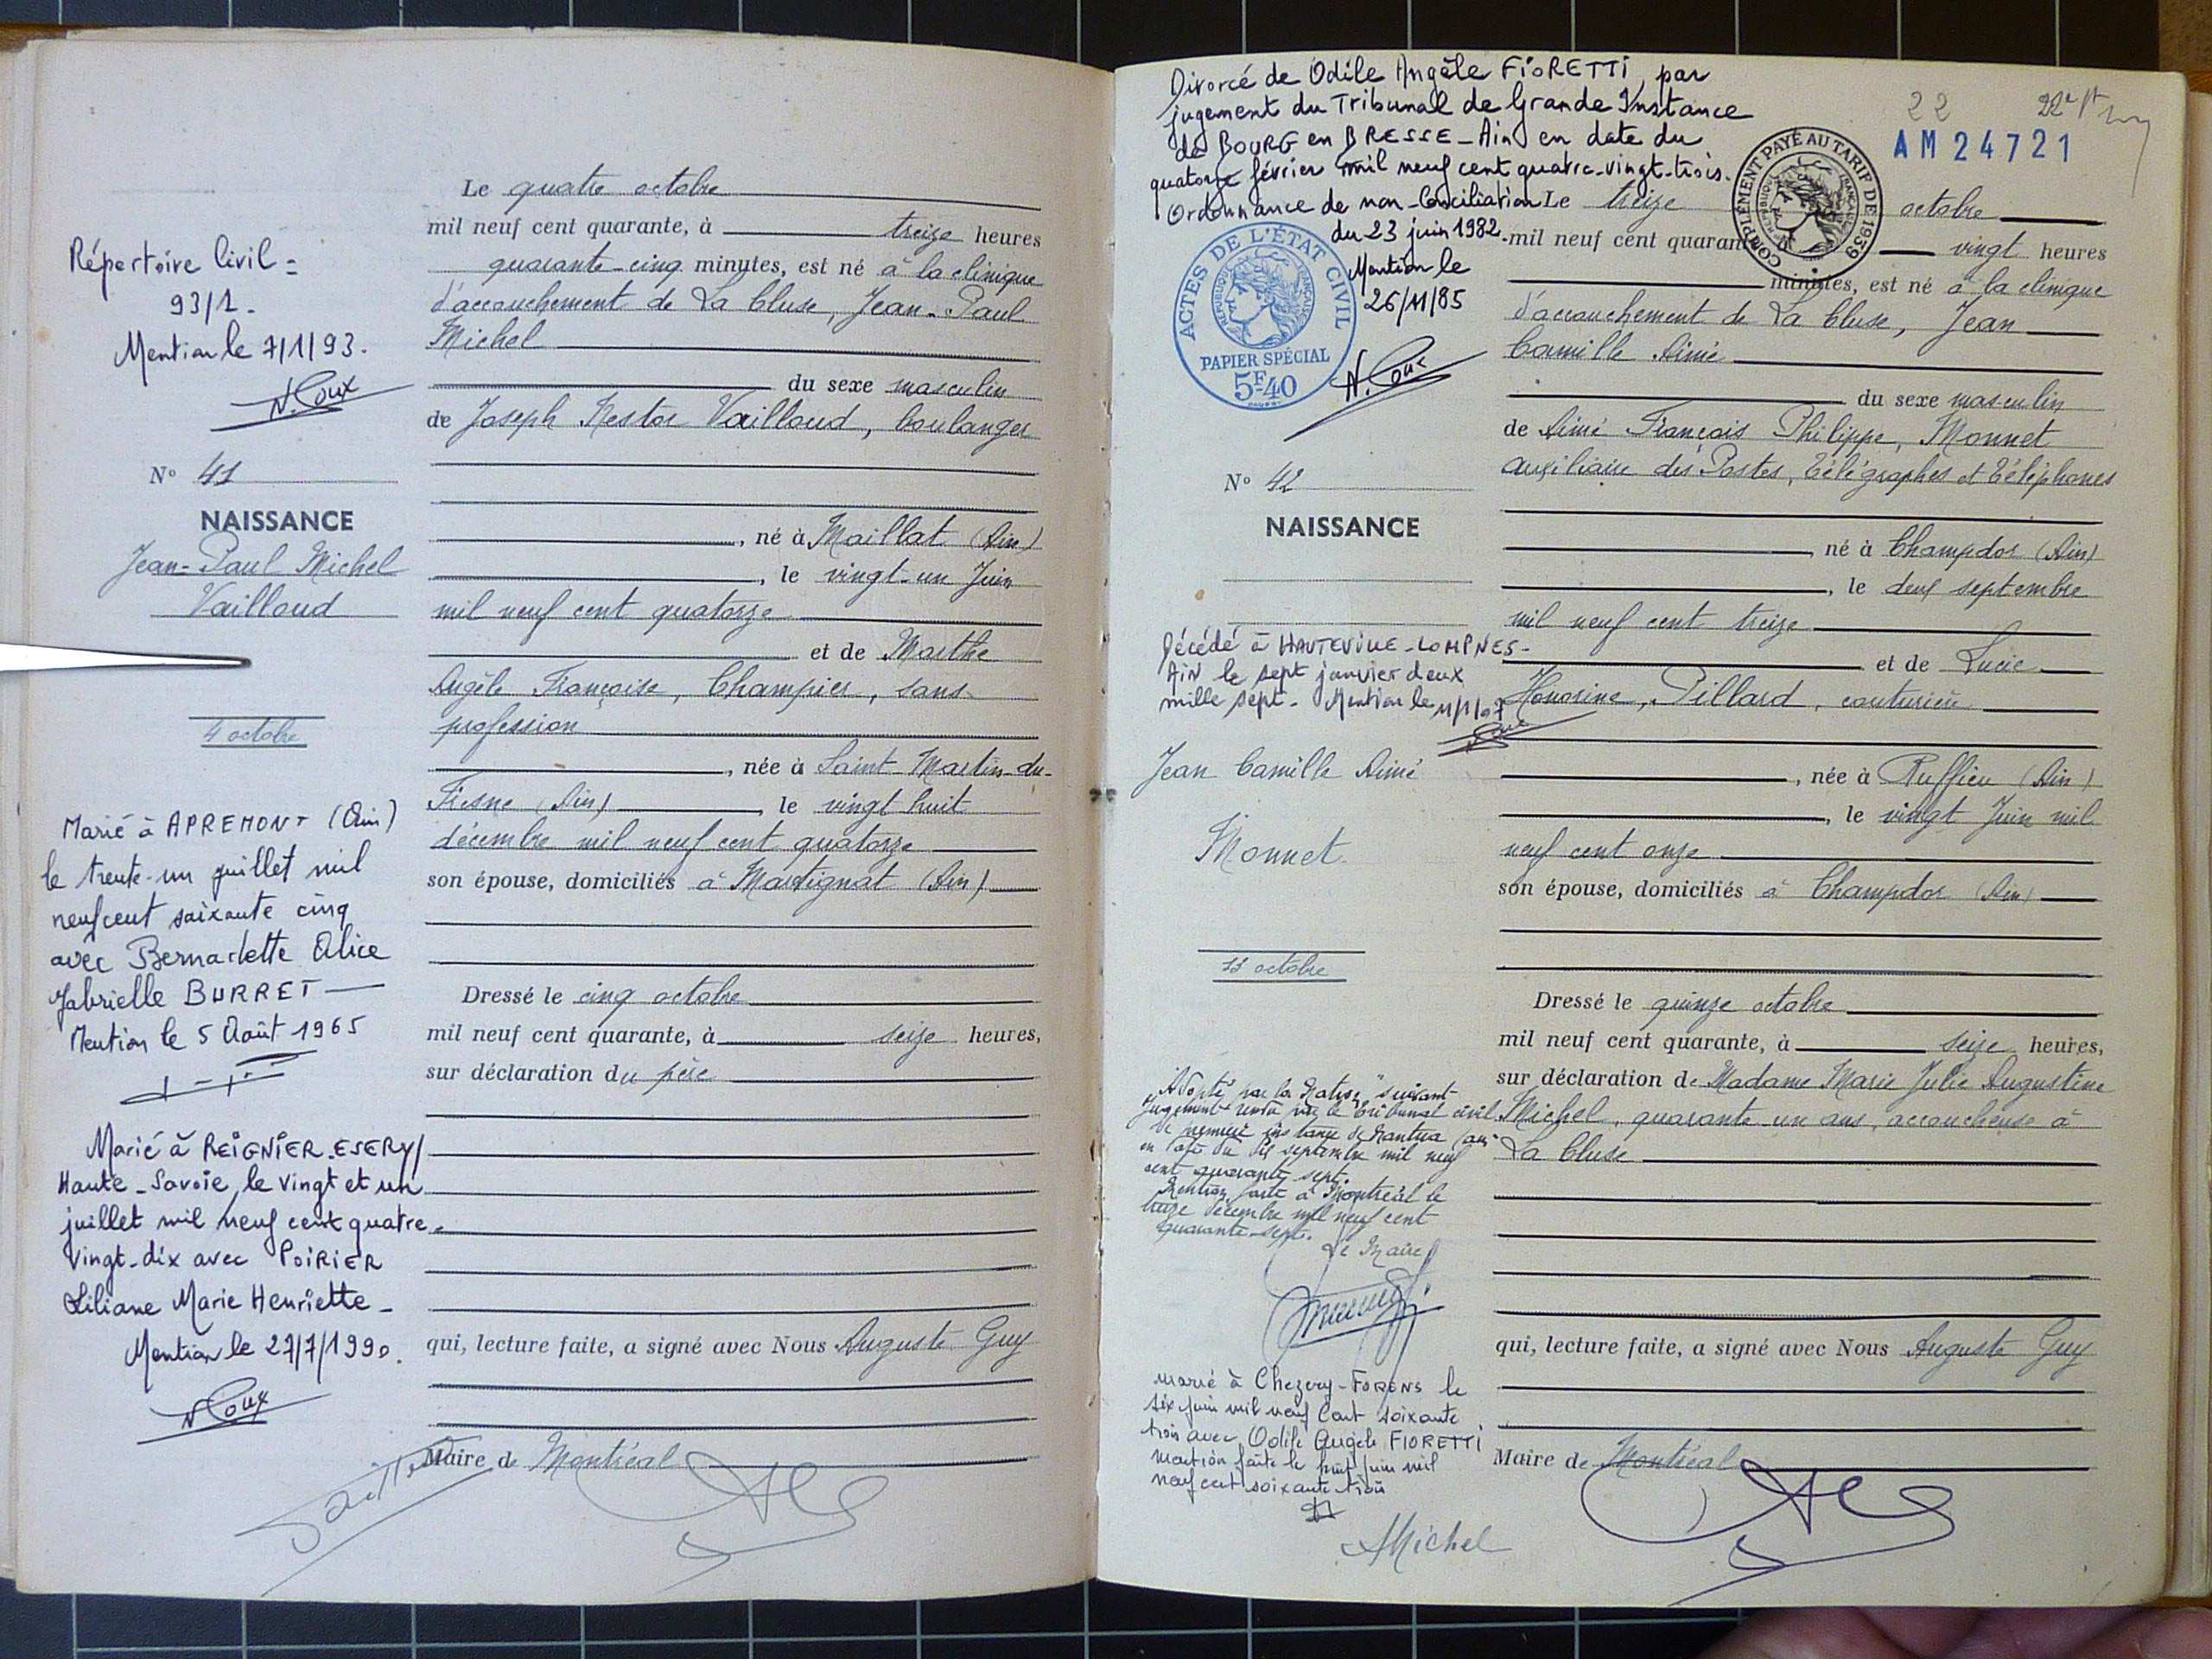 Répertoire Civil =
93/1.
Mention le 7/1/93.
N. Coux
N° 41
NAISSANCE
Jean-Paul Michel
Vailloud
4 octobre
Marié à APREMONT (Ain)
le trente-un juillet mil
neuf cent soixante cinq
avec Bernadette Alice
Gabrielle BURRET —
Mention le 5 Août 1965
Marié à REIGNIER-ESERY/
Haute-Savoie, le vingt et un
juillet mil neuf cent quatre-
vingt-dix avec POIRIER
Liliane Marie Henriette -
Mention le 27/7/1990.
N Coux
Le quatre octobre
mil neuf cent quarante, à treize heures
quarante-cinq minutes, est né à la clinique
d'accouchement de La Cluse, Jean-Paul
Michel
du sexe masculin
de Joseph Nestor Vailloud, boulanger
, né à Maillat (Ain)
, le vingt-un Juin
mil neuf cent quatorze
et de Marthe
Angèle Françoise, Champier, sans
profession
, née à Saint-Martin-du-
Fresne (Ain) , le vingt huit
décembre mil neuf cent quatorze
son épouse, domiciliés à Martignat (Ain)
Dressé le cinq octobre
mil neuf cent quarante, à seize heures,
sur déclaration du père
qui, lecture faite, a signé avec Nous Auguste Guy
Maire de Montréal
Divorcé de Odile Angèle FIORETTI, par
jugement du Tribunal de Grande Instance
de BOURG en BRESSE - Ain en date du
quatorze février mil neuf cent quatre-vingt-trois.
Ordonnance de non-Conciliation
du 23 juin 1982.
Mention le
26/11/85
N. Coux
ACTES DE L'ÉTAT CIVIL
RÉPUBLIQUE FRANÇAISE
PAPIER SPÉCIAL
5F40
22
AM24721
COMPLÉMENT PAYÉ AU TARIF DE 1939
RÉPUBLIQUE FRANÇAISE
N° 42
NAISSANCE
Décédé à HAUTEVILLE-LOMPNES-
AIN le sept janvier deux
mille sept. Mention le 11/1/07
Jean Camille Aimé
Monnet
Adopté par la Nation, suivant
jugement rendu par le Tribunal civil
de première instance de Nantua (Ain)
en date du septembre mil neuf
cent quarante sept.
Mention faite à Montréal le
décembre mil neuf cent
quarante-sept.
Le Maire
marié à Chezery-FORENS le
six juin mil neuf Cent soixante
trois avec Odile Angèle FIORETTI
mention faite le huit juin mil
neuf cent soixante trois
Le treize octobre
mil neuf cent quarante vingt heures
minutes, est né à la clinique
d'accouchement de La Cluse, Jean
Camille Aimé
du sexe masculin
de Aimé François Philippe, Monnet
auxiliaire des Postes, Télégraphes et Téléphones
, né à Champdor (Ain)
, le deux septembre
mil neuf cent treize
et de Lucie
Honorine, Pillard, couturière
, née à Ruffieu (Ain)
, le vingt Juin mil
neuf cent onze
son épouse, domiciliés à Champdor (Ain)
Dressé le quinze octobre
mil neuf cent quarante, à seize heures,
sur déclaration de Madame Marie Julie Augustine
Michel, quarante un ans, accoucheuse à
La Cluse
qui, lecture faite, a signé avec Nous Auguste Guy
Maire de Montréal
AMichel